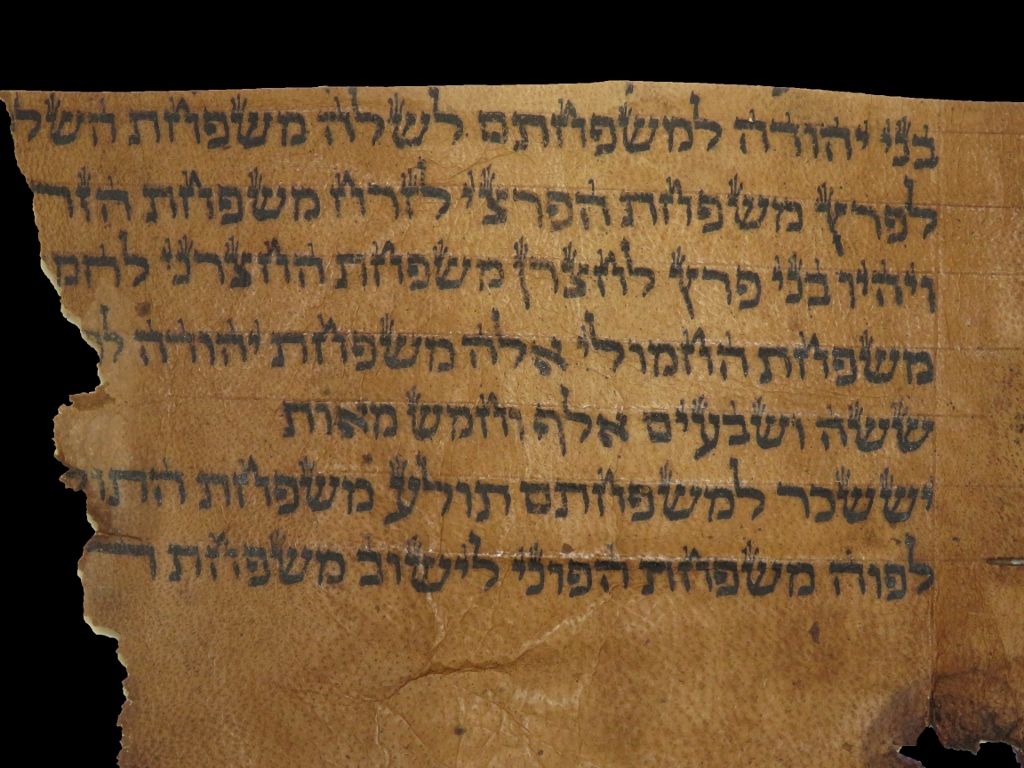 בני יהודה למשפחתם לשלה משפחת השל
לפרץ משפחת הפרצי לזרח משפחת הזר
ויהיו בני פרץ לחצרן משפחת החצרני לחמ
משפחת החמולי אלה משפחת יהודה
ששה ושבעים אלף וחמש מאות
יששכר למשפחתם תולע משפחת התול
לפוה משפחת הפוני לישוב משפחת